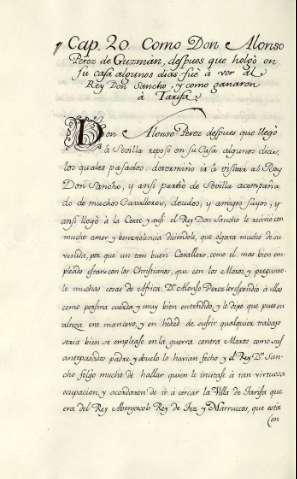 Cap. 20. Como Don Alonso
Perez de Guzmán, despues que holgó en
su casa algunos dias fué à ver al
Rey Don Sancho, y como ganaron
à Tarifa.
Don Alonso Perez despues que llegó
à Sevilla reposó en su Casa algunos dias,
los quales pasados determinó ir à visitar al Rey
Don Sancho, y ansi partió de Sevilla acompaña
do de muchos Cavalleros, deudos, y amigos suyos, y
ansi llegó à la Corte y asi el Rey Don Sancho le recivió con
mucho amor y benevolencia diciendole, que olgava mucho de su
venida, por que un tan buen Cavallero como él mas bien em
pleado estava con los Christianos, que con los Moros, y preguntó
le muchas cosas de Africa. Dn. Alonso Perez le respondió à ellas
como persona cuerda y muy bien entendida, y le dijo que pues su
alteza era mancevo, y en hedad de sufrir qualquier trabajo
seria bien se emplease en la guerra contra Moros como sus
antepasados padre y abuelo lo havian fecho y el Rey Dn. San-
cho folgó mucho de hallar quien le incitase à tan virtuosa
ocupacion y acordaron de ir à cercar la Villa de Tarifa que
era del Rey Abenjacob Rey de Fez y Marruecos, que esta